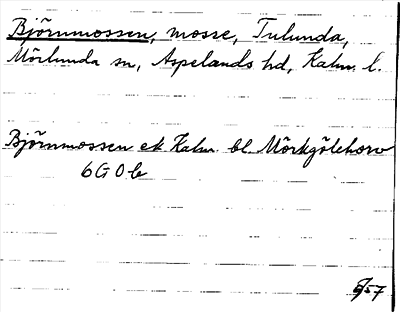 Björnmossen, mosse, Tulunda,
Mörlunda sn, Aspelands hd, Kalm. l.
Björnmossen ek Kalm. bl. Mörkgölehorv
6G0b
57